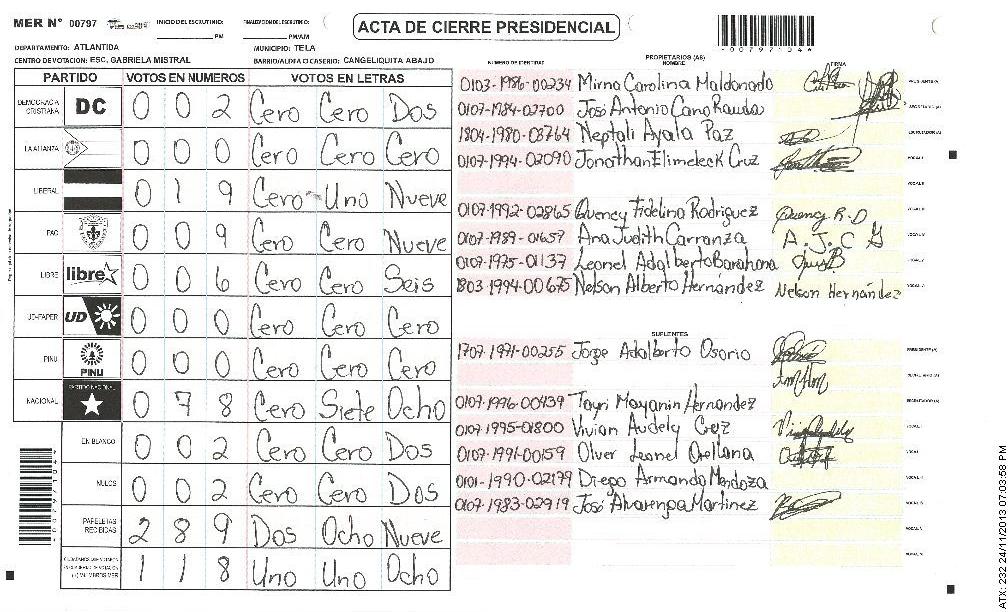 MER N° 00797
INICIO DEL ESCRUTINIO: PM
FINALIZACION DEL ESCRUTINIO: PM/AM
ACTA DE CIERRE PRESIDENCIAL
DEPARTAMENTO: ATLANTIDA
MUNICIPIO: TELA
CENTRO DE VOTACION: ESC. GABRIELA MISTRAL
BARRIO/ALDEA O CASERIO: CANGELIQUITA ABAJO
PARTIDO VOTOS EN NUMEROS VOTOS EN LETRAS
DEMOCRACIA CRISTIANA DC 0 0 2 Cero Cero Dos
LA ALIANZA 0 0 0 Cero Cero Cero
LIBERAL 0 1 9 Cero Uno Nueve
PAC 0 0 9 Cero Cero Nueve
LIBRE libre 0 0 6 Cero Cero Seis
UD-FAPER UD 0 0 0 Cero Cero Cero
PINU PINU 0 0 0 Cero Cero Cero
NACIONAL PARTIDO NACIONAL 0 7 8 Cero Siete Ocho
EN BLANCO 0 0 2 Cero Cero Dos
NULOS 0 0 2 Cero Cero Dos
PAPELETAS RECIBIDAS 2 8 9 Dos Ocho Nueve
1 1 8 Uno Uno Ocho
PROPIETARIOS (AS)
NUMERO DE IDENTIDAD NOMBRE FIRMA
0103-1986-00234 Mirna Carolina Maldonado PRESIDENTE (A)
0107-1984-02700 José Antonio Cano Rauda SECRETARIO (A)
1804-1980-03764 Neptali Ayala Paz ESCRUTADOR (A)
0107-1994-02090 Jonathan Elimeleck Cruz VOCAL I
VOCAL II
0107-1992-02865 Quency Fidelino Rodriguez Quency R-D
0107-1989-01657 Ana Judith Carranza A.J.C G
0107-1975-01137 Leonel Adalberto Barahona
1803-1994-00675 Nelson Alberto Hernández Nelson Hernández
SUPLENTES
1707-1971-00255 Jorge Adalberto Osorio PRESIDENTE (A)
SECRETARIO (A)
0107-1996-00439 Tayri Mayanin Hernandez ESCRUTADOR (A)
0107-1995-01800 Vivian Audely Cruz VOCAL I
0107-1991-00159 Olver Leonel Orellana
0101-1990-02179 Diego Armando Mendoza
0107-1983-02919 José Alvarenga Martinez
ATX: 232 24/11/2013 07:03:58 PM